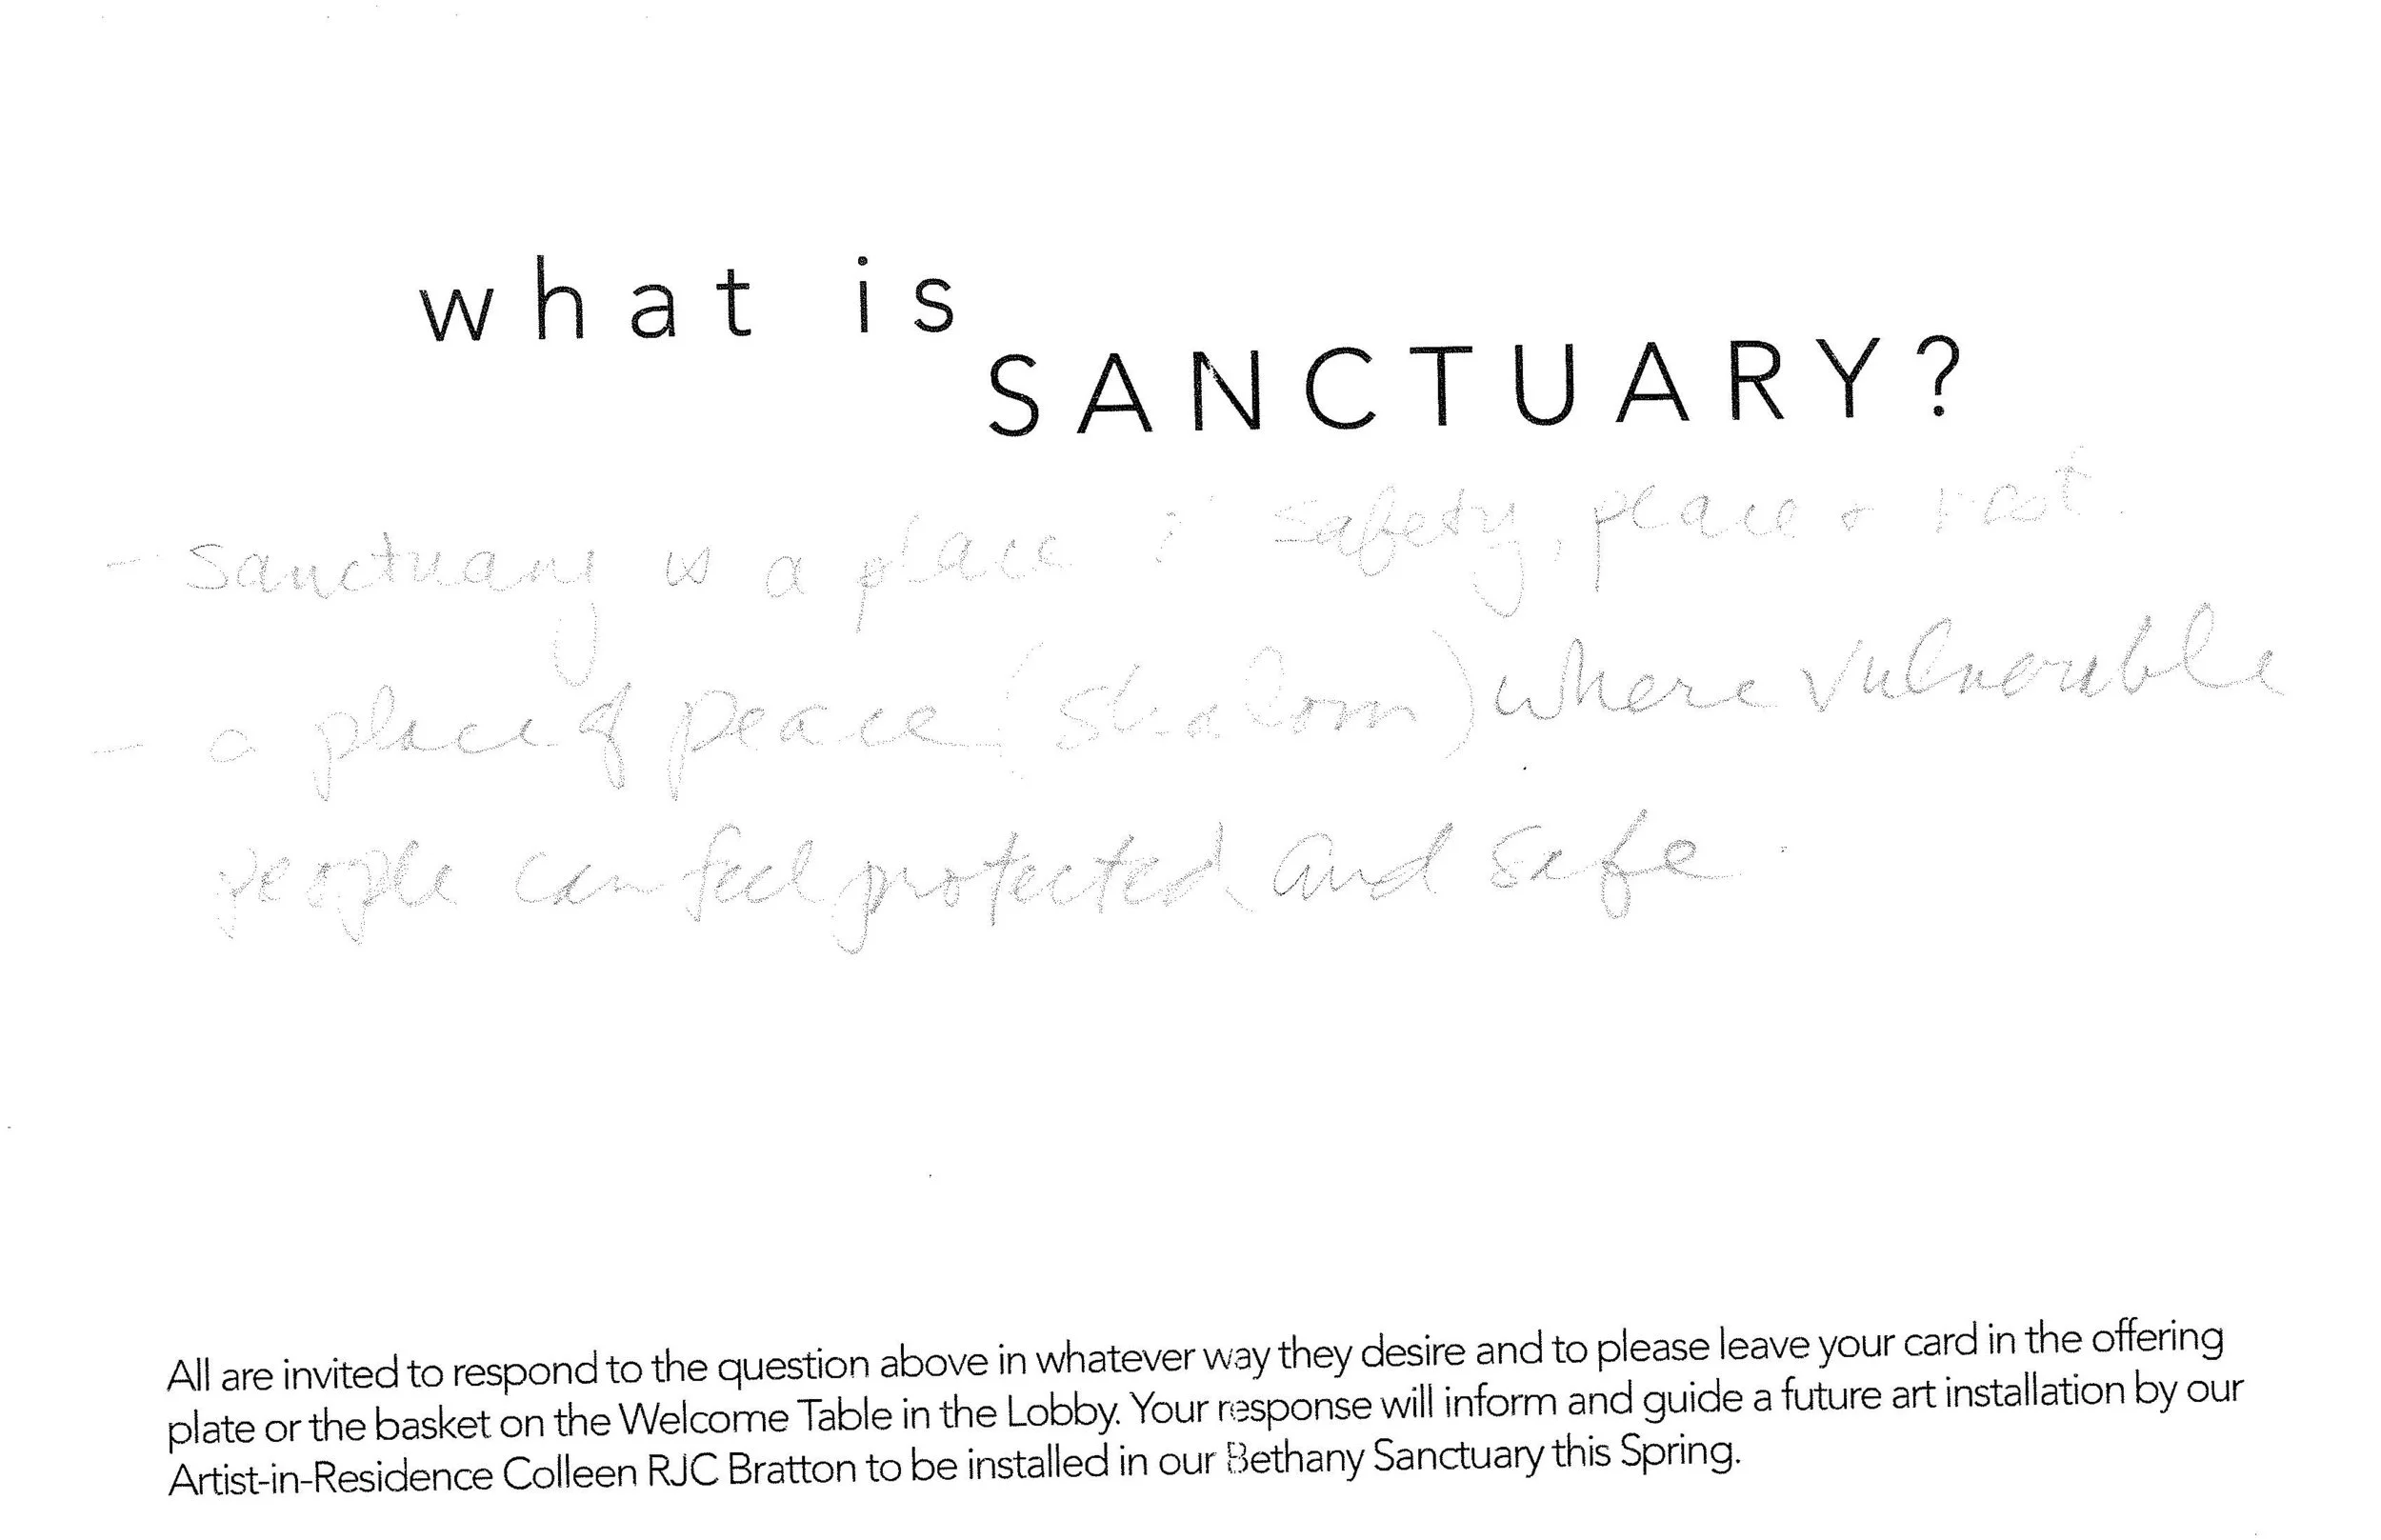 what is
SANCTUARY?
- Sanctuary is a place safety, peace + rest.
- a place of peace (shalom) where vulnerable
people can feel protected and safe.
All are invited to respond to the question above in whatever way they desire and to please leave your card in the offering
plate or the basket on the Welcome Table in the Lobby. Your response will inform and guide a future art installation by our
Artist-in-Residence Colleen RJC Bratton to be installed in our Bethany Sanctuary this Spring.